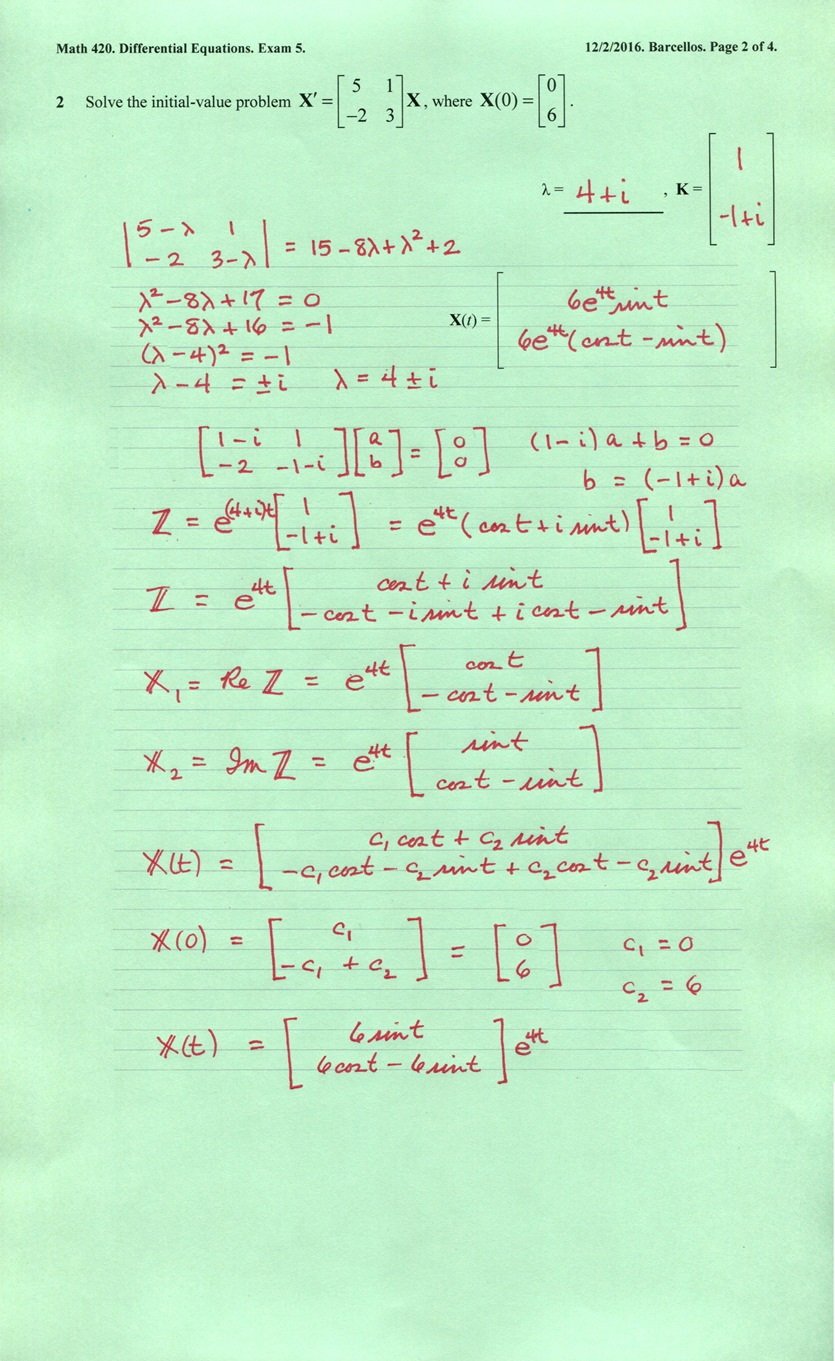 Math 420. Differential Equations. Exam 5. 12/2/2016. Barcellos. Page 2 of 4.
2 Solve the initial-value problem X′ = [5 1; −2 3] X, where X(0) = [0; 6].
λ = 4+i , K = [1; -1+i]
|5-λ 1; -2 3-λ| = 15-8λ+λ²+2
λ²-8λ+17 = 0
λ²-8λ+16 = -1
X(t) = [6e^{4t} sin t; 6e^{4t}(cos t - sin t)]
(λ-4)² = -1
λ-4 = ±i λ = 4±i
[1-i 1; -2 -1-i][a; b] = [0; 0] (1-i)a+b=0
b = (-1+i)a
Z = e^{(4+i)t}[1; -1+i] = e^{4t}(cos t + i sin t)[1; -1+i]
Z = e^{4t}[cos t + i sin t; -cos t - i sin t + i cos t - sin t]
X₁ = Re Z = e^{4t}[cos t; -cos t - sin t]
X₂ = Im Z = e^{4t}[sin t; cos t - sin t]
X(t) = [c₁ cos t + c₂ sin t; -c₁ cos t - c₂ sin t + c₂ cos t - c₂ sin t] e^{4t}
X(0) = [c₁; -c₁ + c₂] = [0; 6] c₁ = 0
c₂ = 6
X(t) = [6 sin t; 6 cos t - 6 sin t] e^{4t}